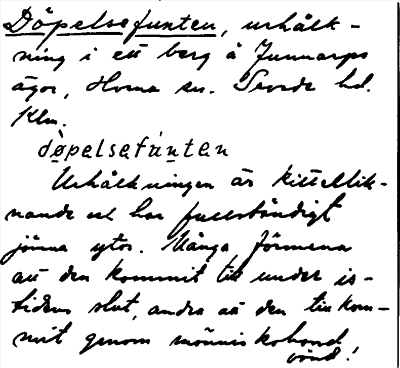 Döpelsefunten, urhålk-
ning i ett berg å Junnarps
ägor, Horna sn. Tveta hd.
Klm.
döpelsefúntèn
Urhålkningen är kittellik-
nande och har fullständigt
jämna ytor. Många förmena
att den kommit till under is-
tidens slut, andra att den tillkom-
mit genom människohand
 !